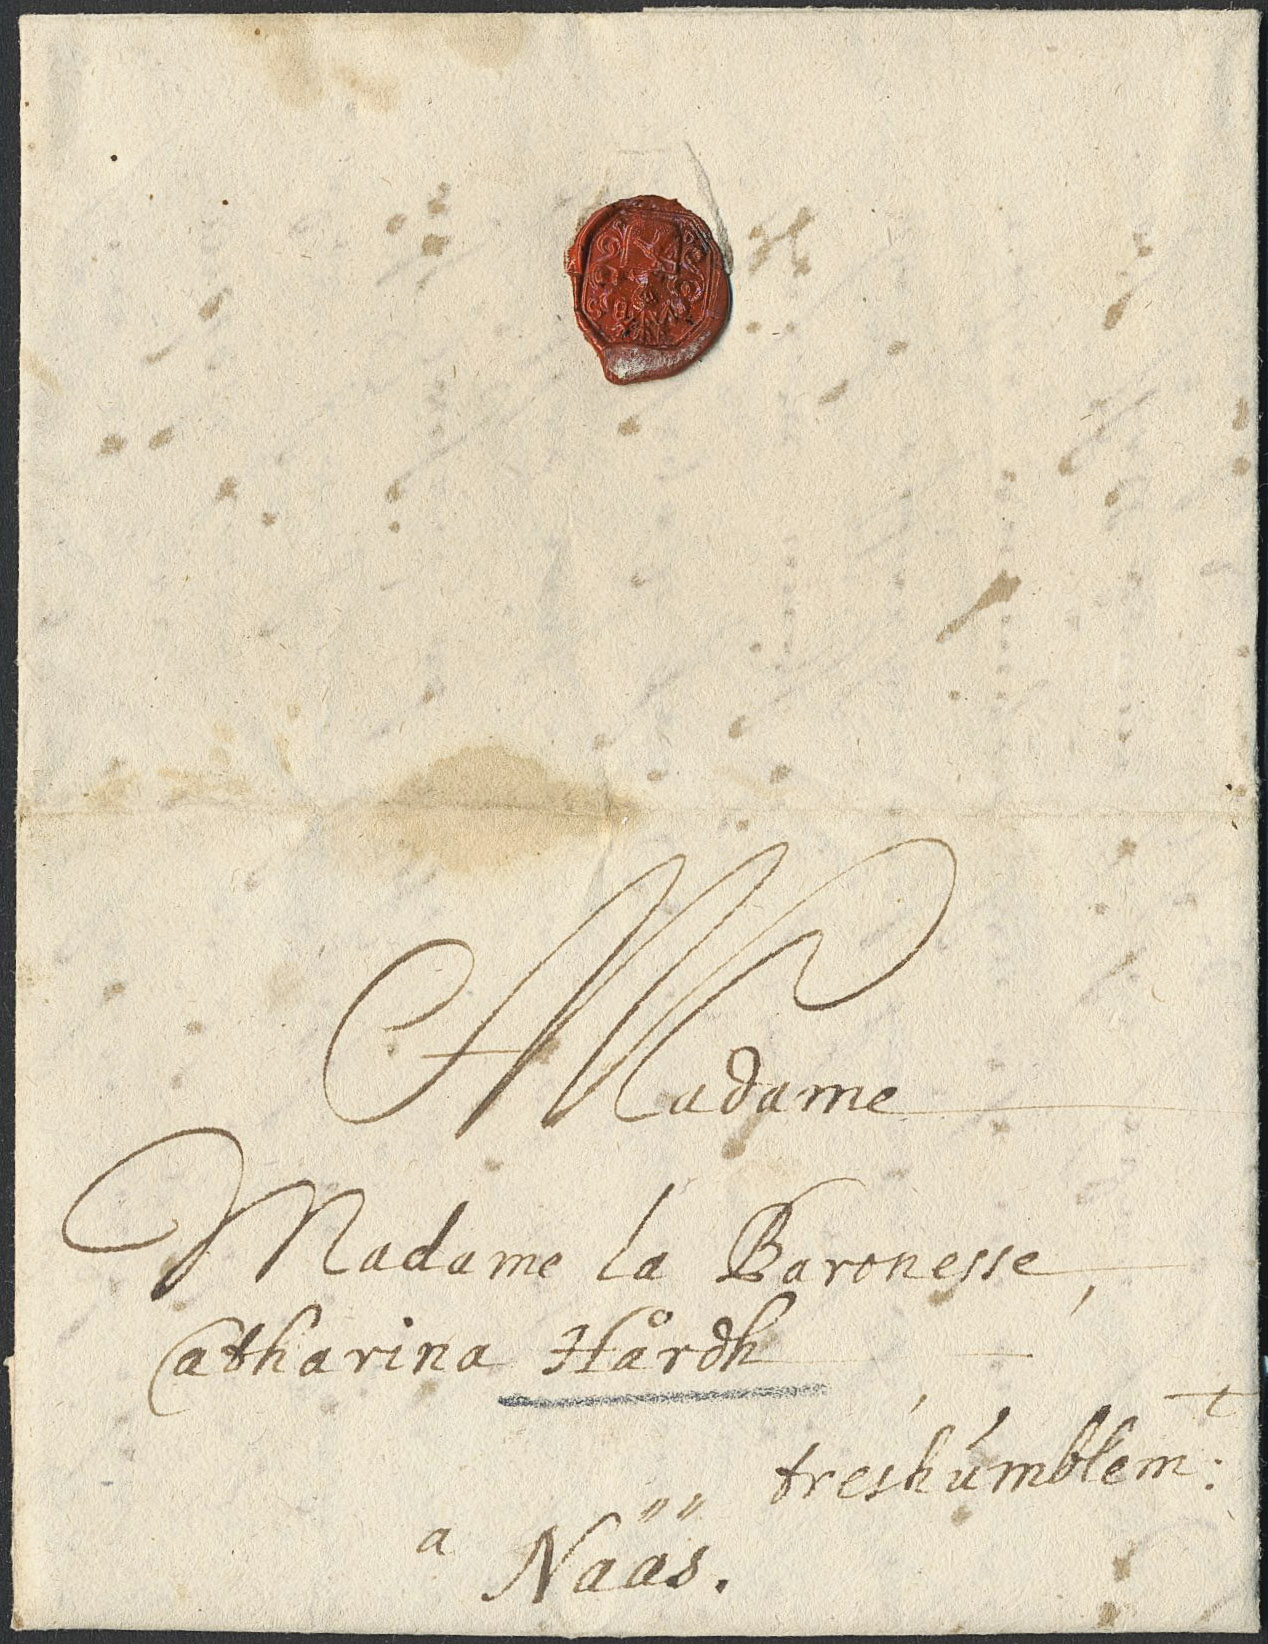 Madame
Madame la Baronesse,
Catharina Hårdh
treshúmblem:t
a Nääs.